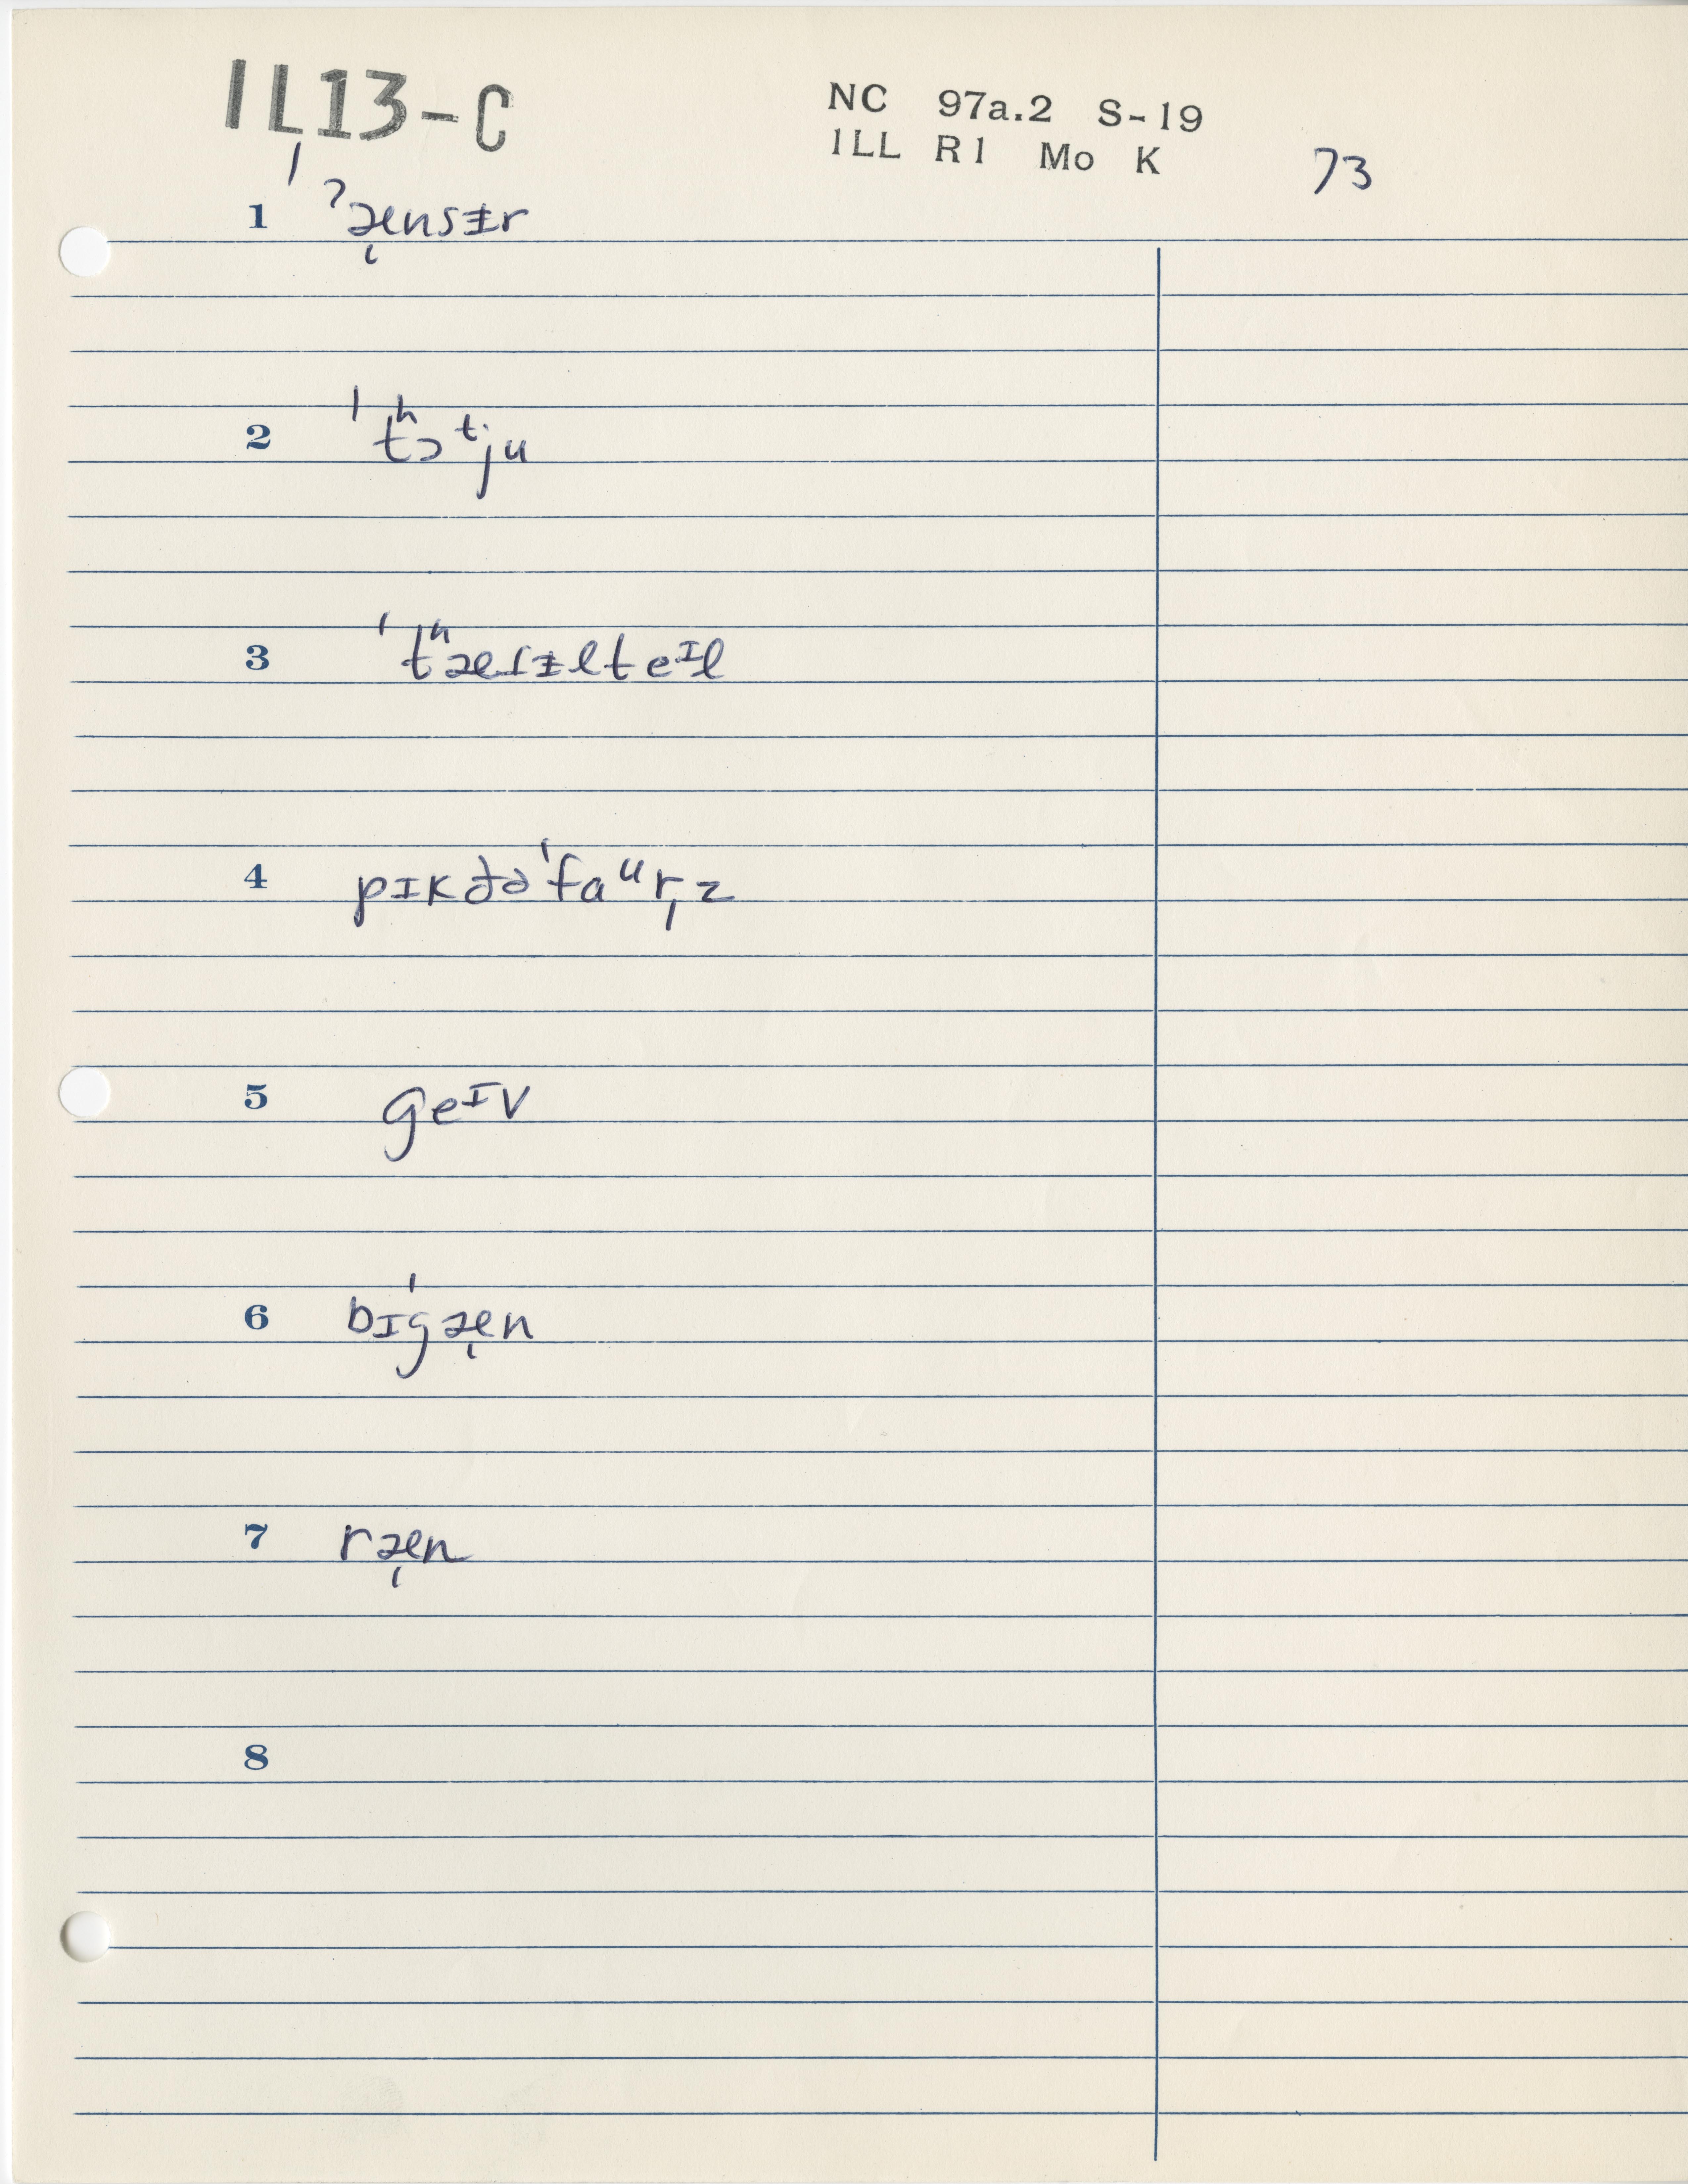 IL13-C
NC 97a.2 S-19
ILL R1 Mo K 73
1 ˈˀæ̩nsᵻr
2 ˈtʰɔᵗju
3 ˈtʰæɪzᵻlteᴵl
4 pɪkðəˈfaᵘr̩z
5 geᴵv
6 bɪˈgæ̩n
7 ræ̩n
8